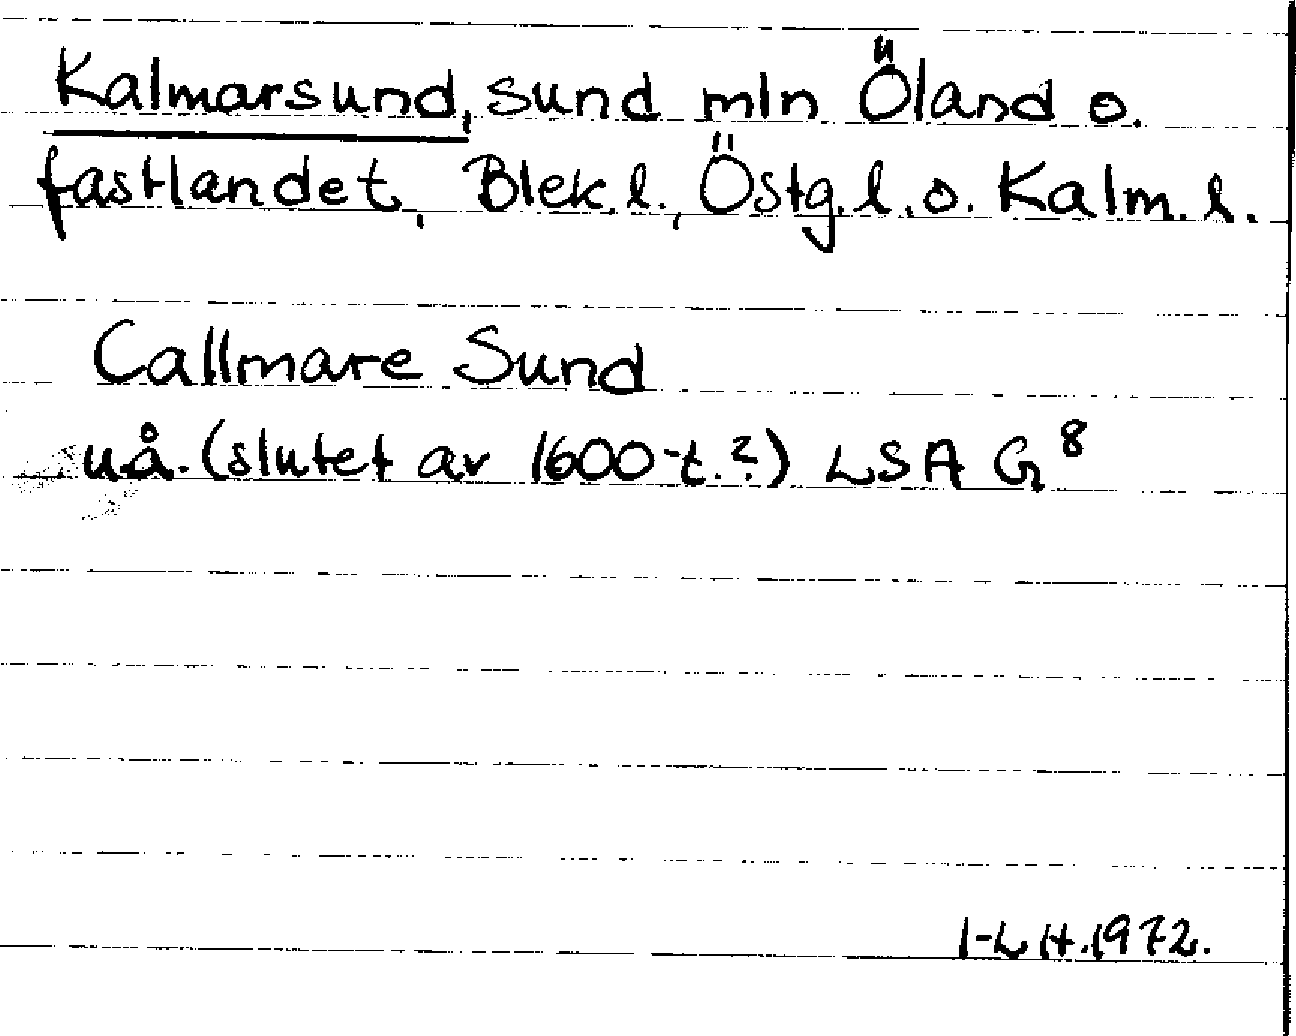 Kalmarsund, sund mln Öland o.
fastlandet, Blek.l., Östg.l. o. Kalm. l.
Callmare Sund
uå. (slutet av 1600-t.?) LSA G 8
I-L H. 1972.